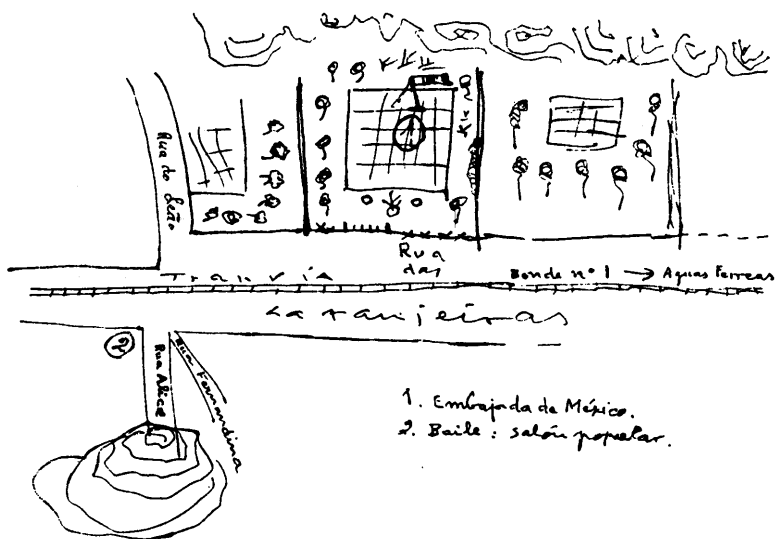 Rua do Leão
Rua
das
Tranvía
Bonde nº 1 → Aguas Ferreas
Laranjeiras
2
Rua Alice
Rua Fernandina
1. Embajada de México.
2. Baile: salón popular.